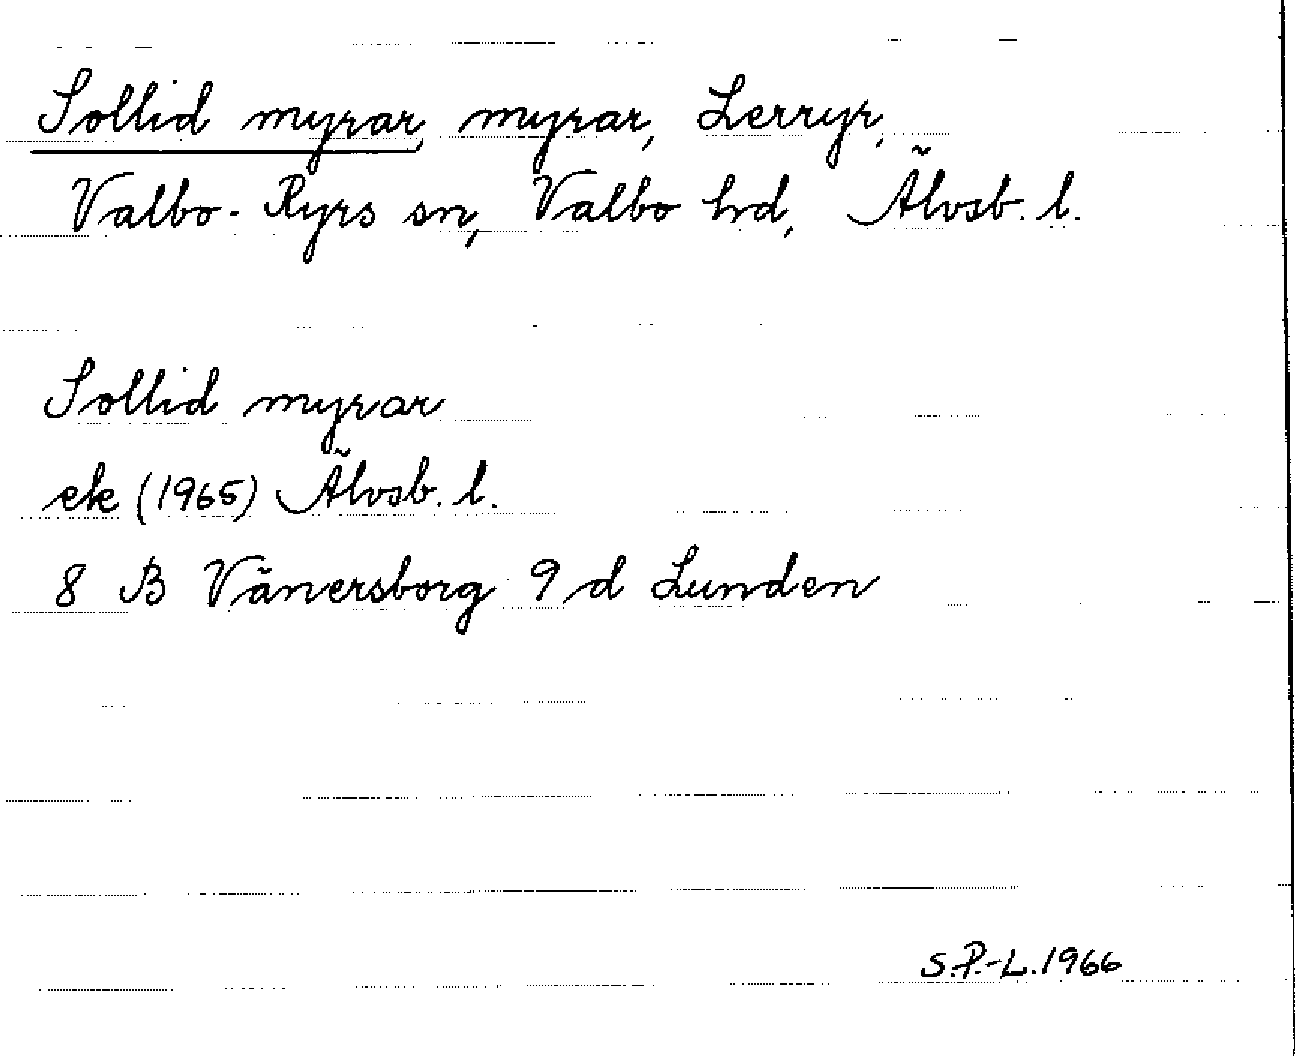 Sollid myrar, myrar, Lerryr,
Valbo-Ryrs sn, Valbo hd, Älvsb. l.
Sollid myrar
ek (1965) Älvsb. l.
8 B Vänersborg 9 d Lunden
S.P.-L. 1966